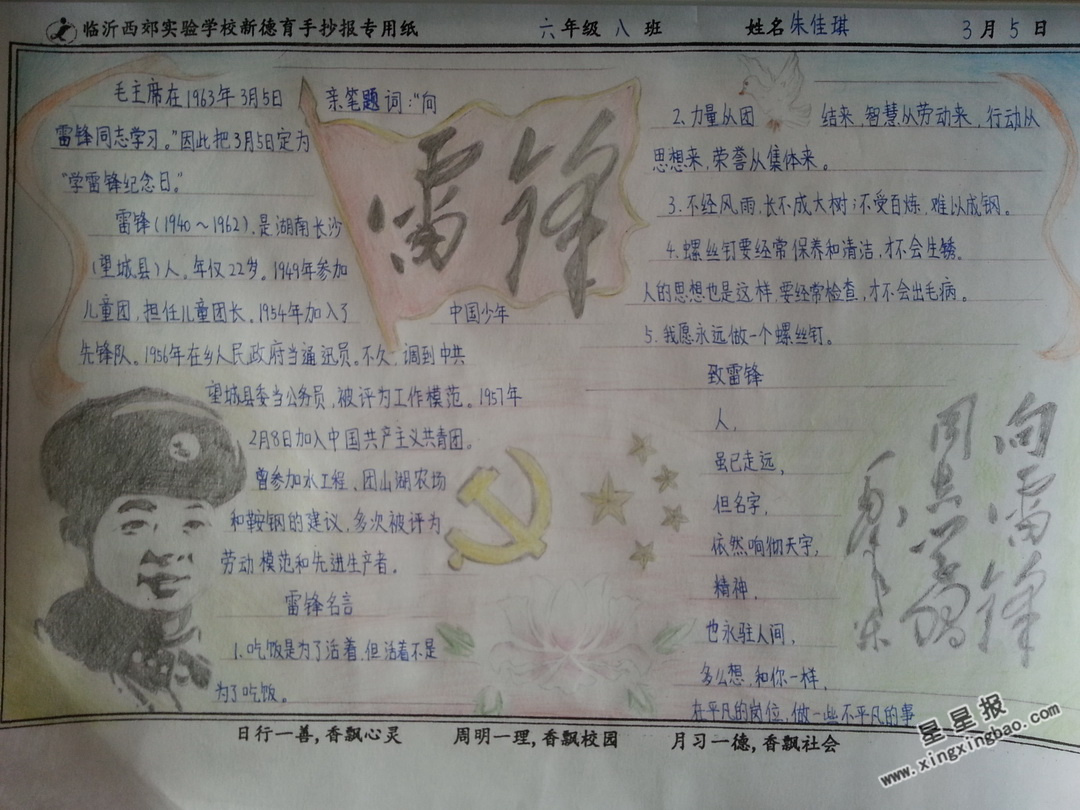 临沂西郊实验学校新德育手抄报专用纸 六年级 八 班 姓名朱佳琪 3月5日
毛主席在1963年3月5日 亲笔题词:“向
雷锋同志学习。”因此把3月5日定为
“学雷锋纪念日。”
雷锋(1940～1962),是湖南长沙
(望城县)人,年仅22岁。1949年参加
儿童团,担任儿童团长。1954年加入了 中国少年
先锋队。1956年在乡人民政府当通迅员。不久,调到中共
望城县委当公务员,被评为工作模范。1957年
2月8日加入中国共产主义共青团。
曾参加水工程、团山湖农场
和鞍钢的建议,多次被评为
劳动模范和先进生产者。
雷锋名言
1.吃饭是为了活着,但活着不是
为了吃饭。
雷锋
2.力量从团 结来,智慧从劳动来,行动从
思想来,荣誉从集体来。
3.不经风雨,长不成大树;不受百炼,难以成钢。
4.螺丝钉要经常保养和清洁,才不会生锈。
人的思想也是这样,要经常检查,才不会出毛病。
5.我愿永远做一个螺丝钉。
致雷锋
人,
虽已走远,
但名字,
依然响彻天宇,
精神,
也永驻人间,
多么想,和你一样,
在平凡的岗位,做一些不平凡的事
向雷锋
同志学习
毛泽东
日行一善,香飘心灵 周明一理,香飘校园 月习一德,香飘社会
星星报
www.xingxingbao.com